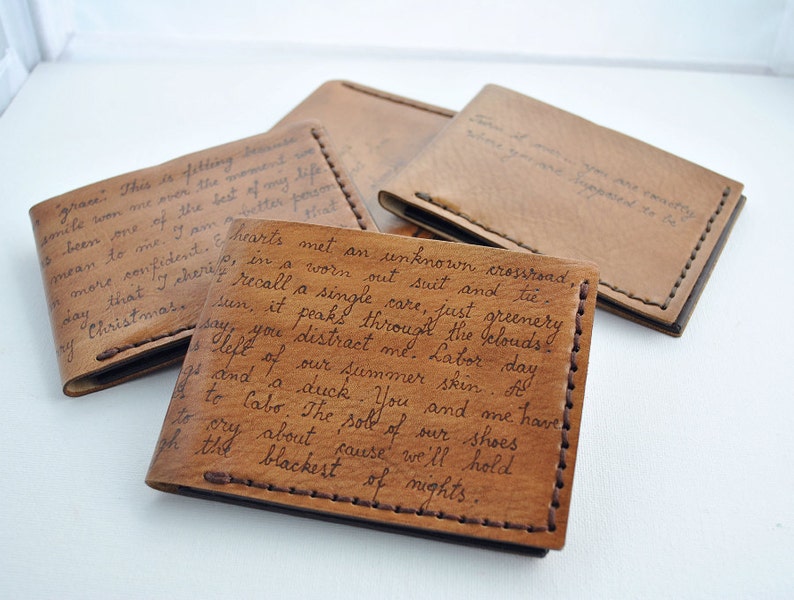 "grace". This is fitting because
smile won me over the moment we
been one of the best of my life.
mean to me. I am a better person
more confident. that
day that I
Christmas.
Turn it over... you are exactly
where you are supposed to be
hearts met an unknown crossroad,
in a worn out suit and tie.
recall a single care, just greenery
sun, it peaks through the clouds.
say, you distract me. Labor day
left of our summer skin. A
and a duck. You and me have
to Cabo. The sole of our shoes
to cry about 'cause we'll hold
the blackest of nights.